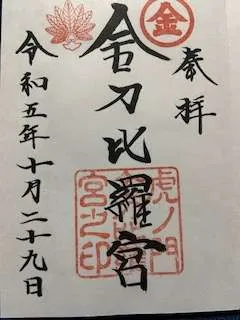 奉拝
金
金刀比羅宮
虎ノ門
金刀比羅
宮之印
令和五年十月二十九日